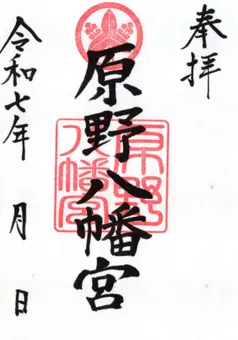 奉拝
原野八幡宮
原野八幡宮
令和七年 月 日